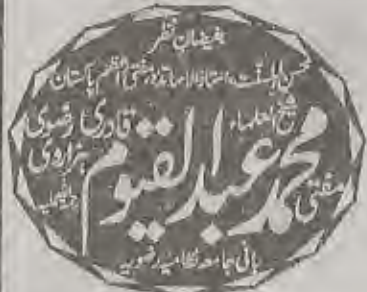 بفیضانِ نظر
محسنِ اہلسنّت، استاذ الاساتذہ، مفتی اعظم پاکستان
شیخ العلماء
مفتی محمد عبدالقیوم قادری رضوی ہزاروی
بانی جامعہ نظامیہ رضویہ